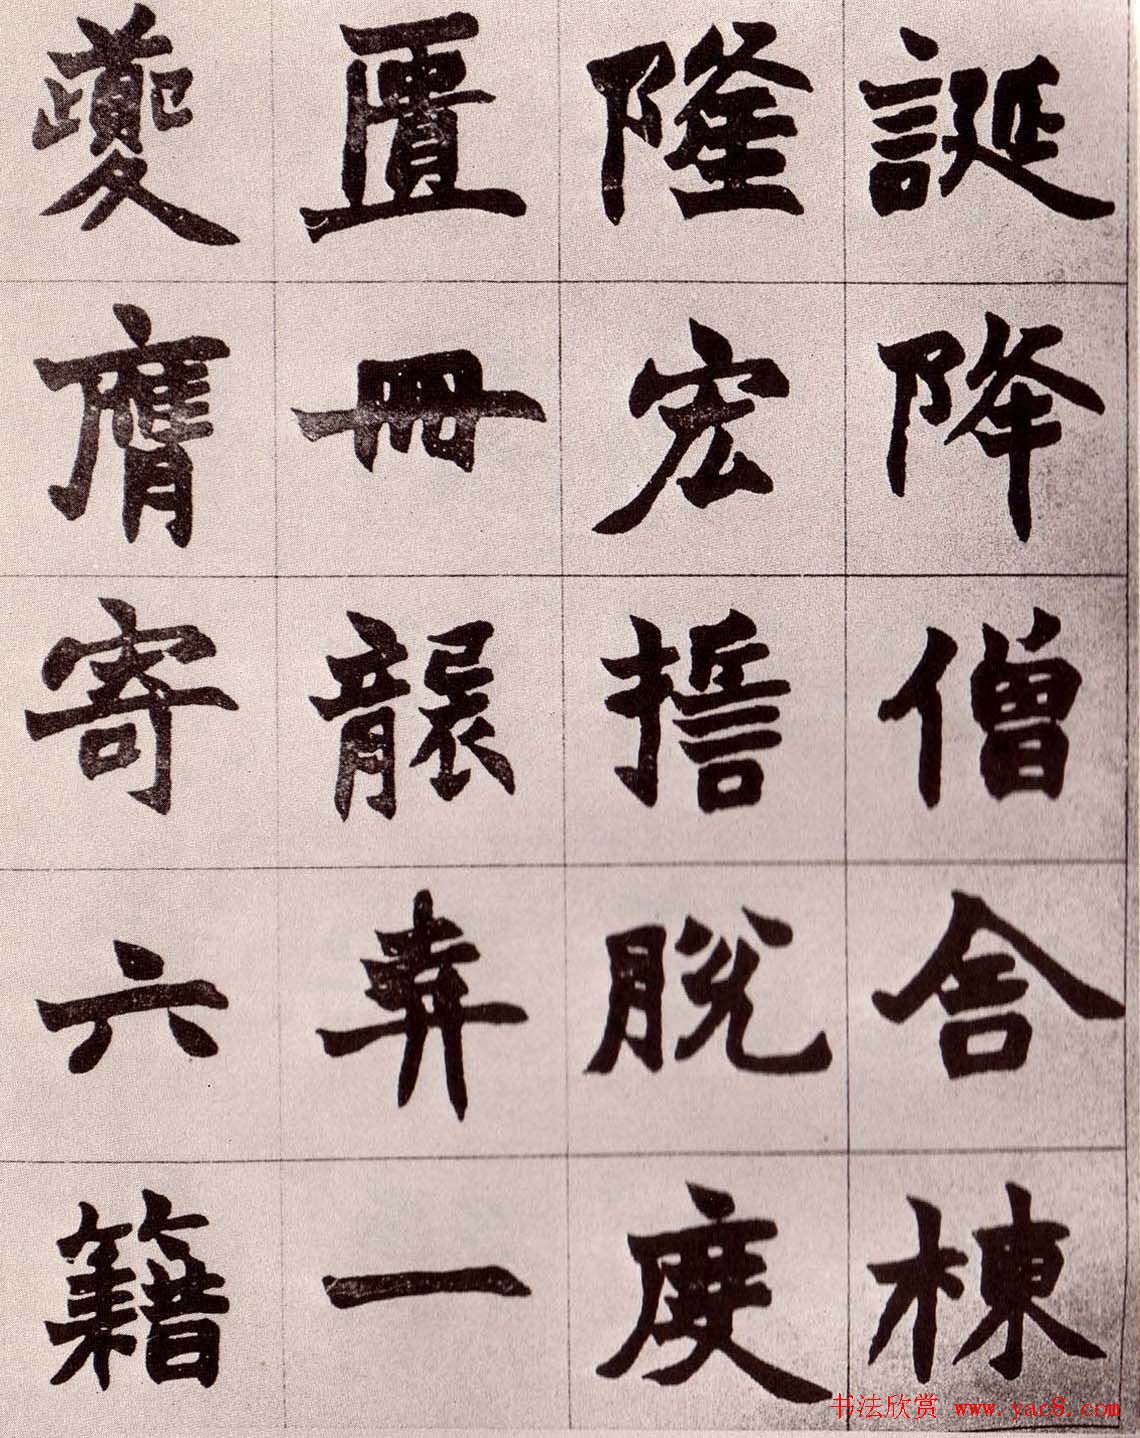 誕降僧舍棟
隆宏誓脫度
匱冊襲弆一
夔膺寄六籍
书法欣赏 www.yac8.com